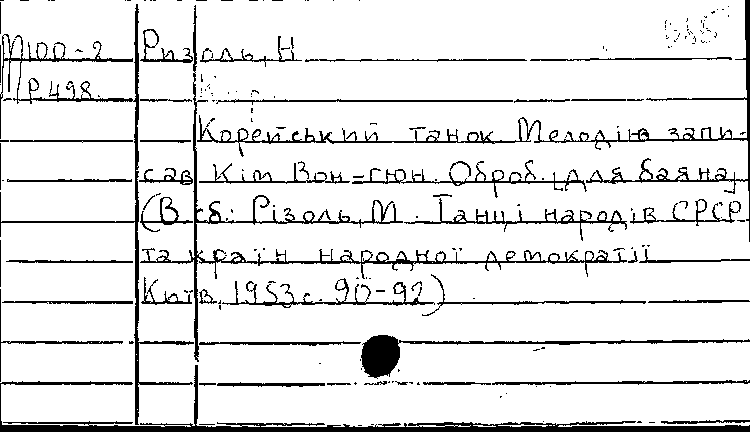 М100-2 Ризоль, Н
Р498.
Корейський танок Мелодію запи-
сав Кім Вон=гюн. Оброб. [для баяна]
(В сб.: Різоль, М. Танці народів СРСР
та країн народної демократії
Київ, 1953 с. 90-92)